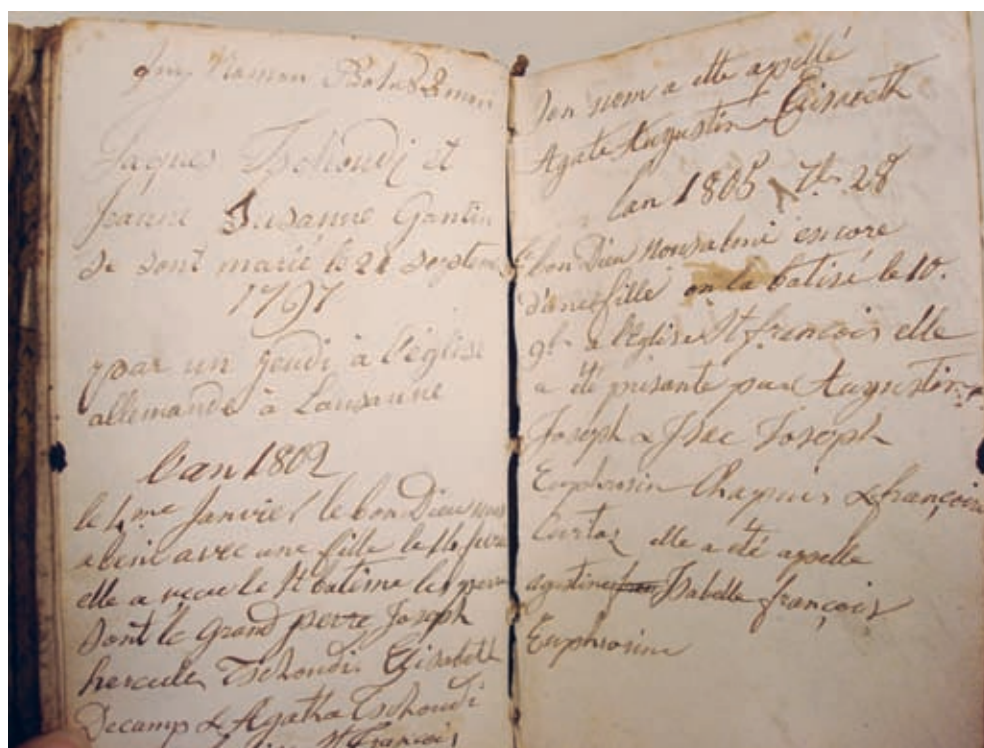 Jaques Tschoudi et
Jeanne Susanne Gantin
se sont marié le 21 Septem
1797
par un Jeudi à l'église
allemande à Lausanne
l'an 1802
le 1me Janvier le bon Dieu nous
a beni avec une fille le 14 fevr
elle a reçue le St batême les
sont le Grand perre Joseph
hercule Tschoudi Elisabeth
Decamp & Agatha Tschoudi
St François
Son nom a etté appellé
Agate Augustin Elisabeth
lan 1805 7br 28
bon Dieu nous a beni encore
d'une fille on la batisé le 10.
9br a l'eglise St francois elle
a été présanté par Augustin
Joseph & Isac Joseph
Euphrosin Chapuis & françoise
Curtaz elle a été appelle
agustine Isabelle françois
Euphrosine